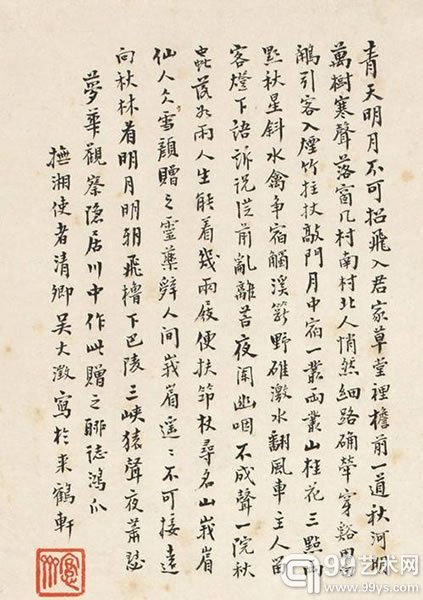 青天明月不可招飛入君家草堂裡檐前一道秋河明
萬樹寒聲落窗几村南村北人悄然細路确犖穿谿
引客入煙竹拄杖敲門月中宿一叢兩叢山桂花三點兩
點秋星斜水禽争宿觸溪籪野碓激水翻風車主人留
客燈下語訴説從前亂離苦夜闌幽咽不成聲一院秋
蟲如雨人生能着幾兩屐便扶筇杖尋名山峩眉
仙人雪顔贈之靈藥辭人間峩眉遥〻不可接遠
向秋林看明月明朝飛櫓下巴陵三峽猿聲夜蕭瑟
夢華觀察隱居川中作此贈之聊誌鴻爪
撫湘使者清卿吳大澂寫於來鶴軒
99艺术网
www.99ys.com